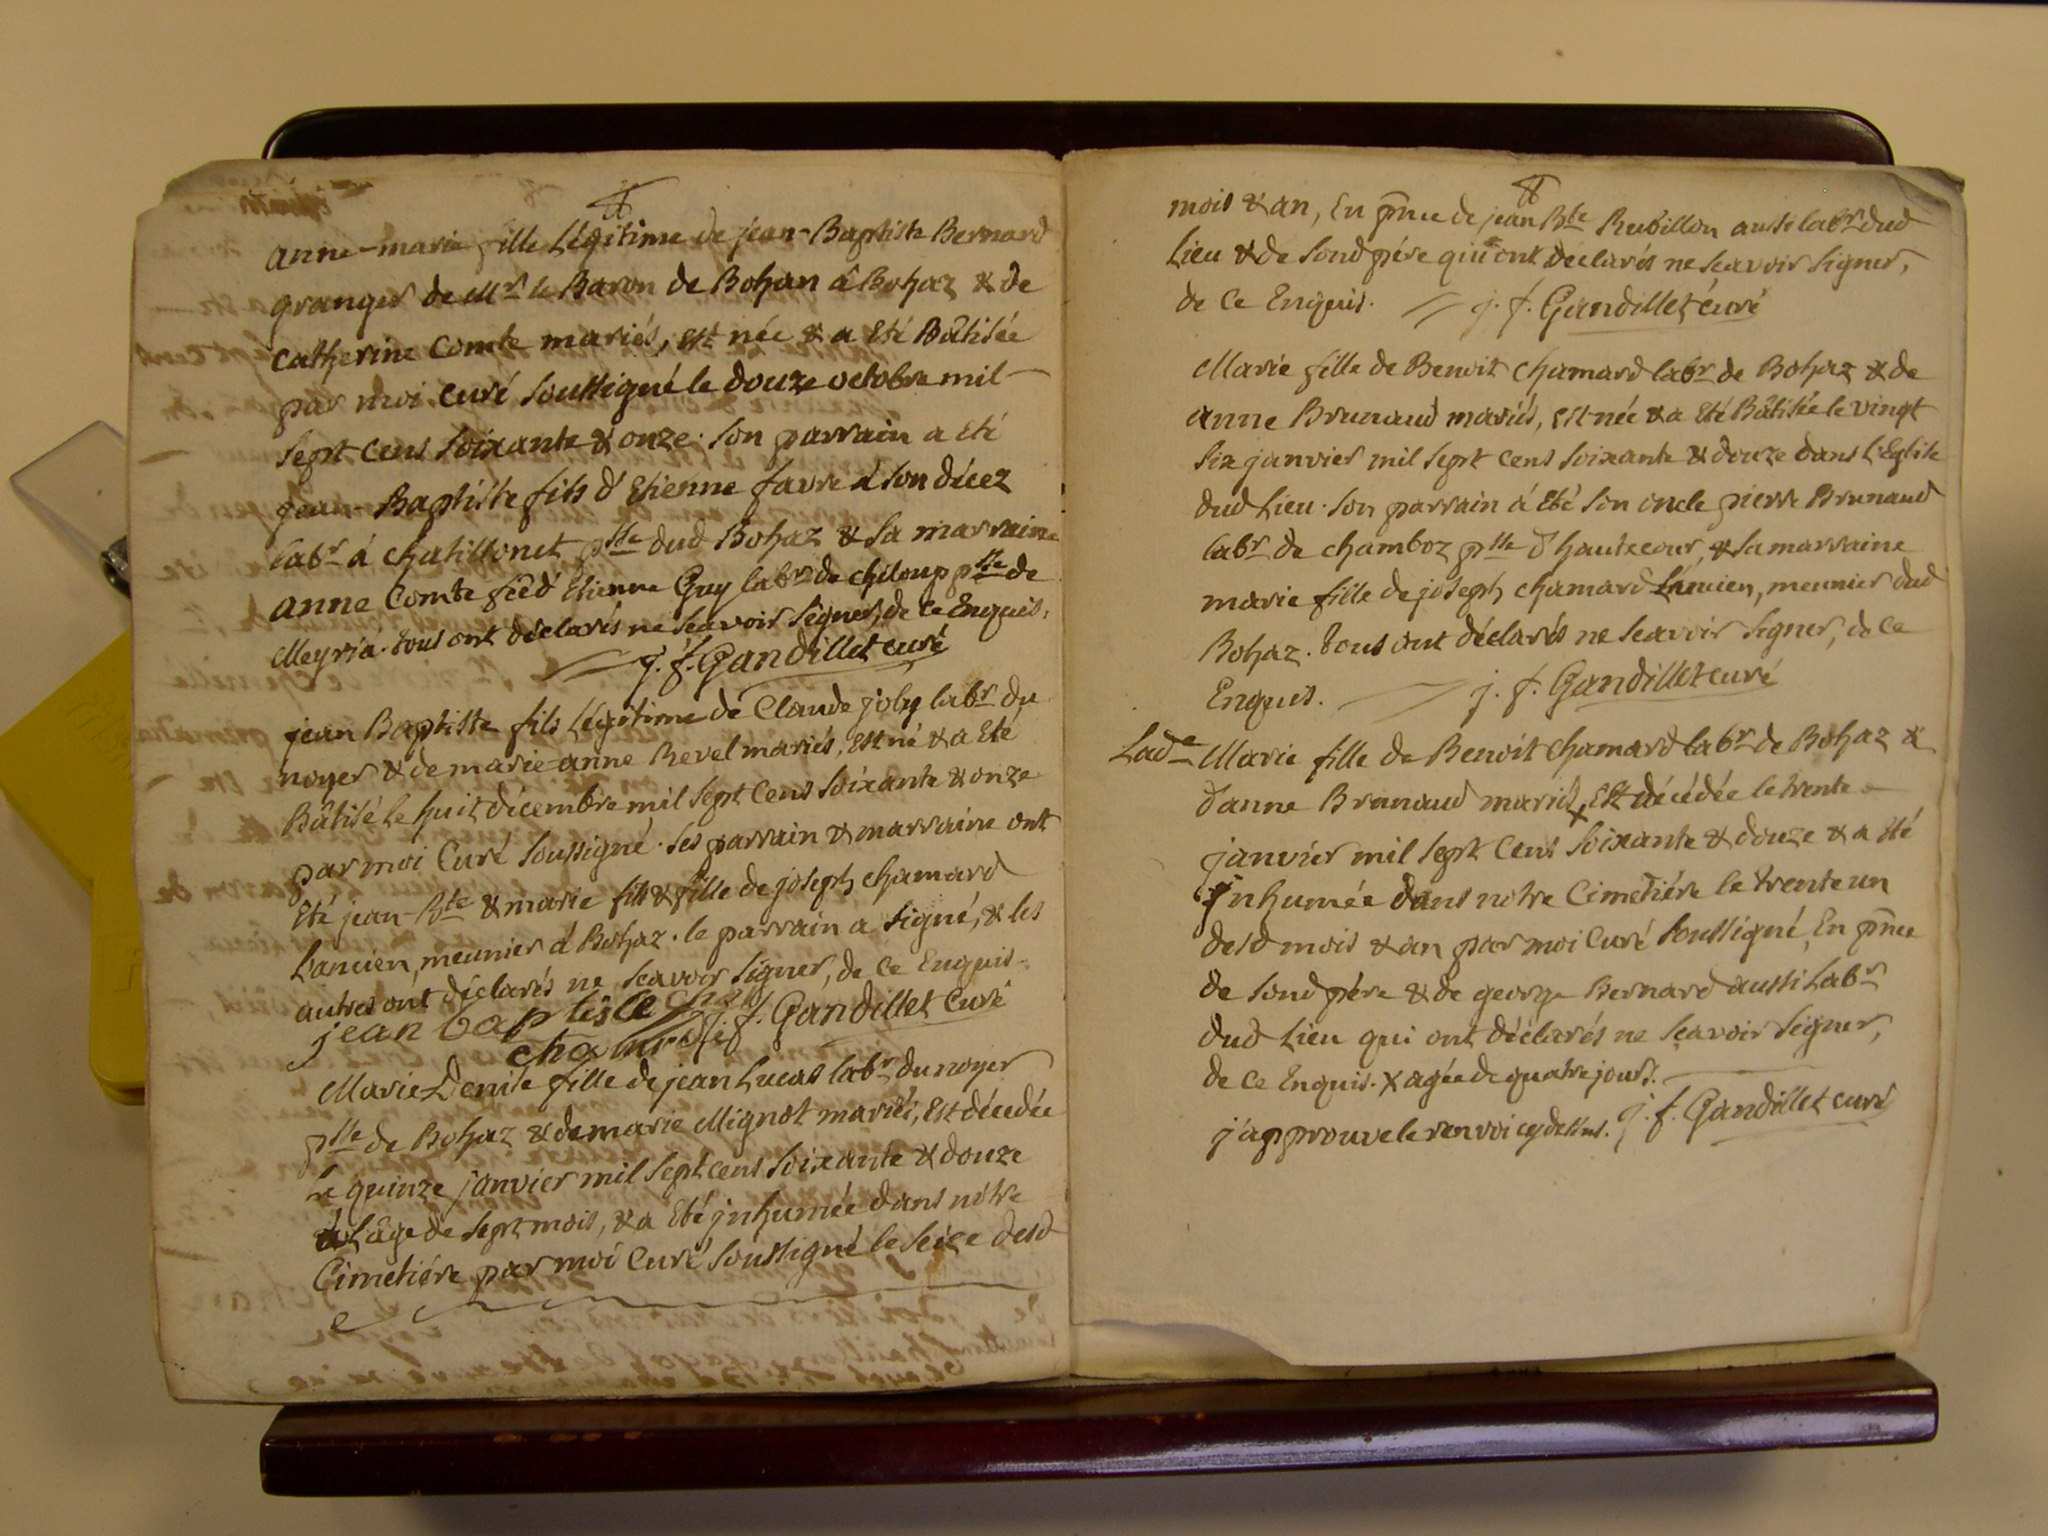 anne-marie fille Légitime de jean-Baptiste Bernard
granger de Mr le Baron de Bohan á Bohaz & de
catherine Comte mariés, est née & a Eté Bâtisée
par moi curé soussigné le douze octobre mil
sept cens soixante & onze. son parrain a Eté
jean-Baptiste fils d'Etienne favre á son décez
labr á chatillonet psse dud Bohaz & sa marraine
anne Comte fê d'Etienne Guy labr de chiloup psse de
Meyria. tous ont déclarés ne scavoir signer, de ce Enquis.
j. f. Gandillet curé
jean Baptiste fils Légitime de Claude joly labr du
noyer & de marie-anne Revel mariés, est né & a Eté
Bâtisé le huit décembre mil sept cens soixante & onze
par moi Curé soussigné. ses parrain & marraine ont
Eté jean-Bte & marie fils & fille de joseph chamard
L'ancien, meunier á Bohaz. le parrain a signé, & les
autres ont déclarés ne scavoir signer, de ce Enquis.
jean baptiste
chamard j. f. Gandillet Curé
Marie Denise fille de jean Lucas labr du noyer
psse de Bohaz & de marie Mignot mariés, Est décedée
le quinze janvier mil sept cens soixante & douze
á L'age de sept mois, & a Eté jnhumée dans nôtre
Cimetiére par moi Curé soussigné le seize desd
mois & an, En pñce de jean Bte Rubillon aussi labr dud
Lieu & de sond pére qui ont déclarés ne scavoir signer,
de ce Enquis. j. f. Gandillet curé
Marie fille de Benoit chamard labr de Bohaz & de
anne Brunaud mariés, est née & a Eté Bâtisée le vingt
six janvier mil sept cens soixante & douze dans L'Eglise
dud Lieu. son parrain á Eté son oncle pierre Brunaud
labr de chamboz psse d'hautecour, & sa marraine
marie fille de joseph chamard L'ancien, meunier dud
Bohaz. tous ont déclarés ne scavoir signer, de ce
Enquis. j. f. Gandillet curé
Lade Marie fille de Benoit chamard labr de Bohaz &
d'anne Brunaud mariés, x Est décédée le trente
janvier mil sept cens soixante & douze & a Eté
jnhumée dans notre Cimetiére le trente un
desd mois & an par moi Curé soussigné, En pñce
de sond pére & de george Bernard aussi Labr
dud Lieu qui ont déclarés ne scavoir signer,
de ce Enquis. x agée de quatre jours.
j'approuve le renvoi cy dessus. j. f. Gandillet curé